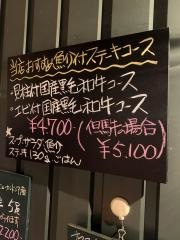 当店おすすめ魚介付ステーキコース
・貝柱付国産黒毛和牛コース
・エビ付国産黒毛和牛コース
¥4,700
(但馬牛の場合)
¥5,100
スープ、サラダ、魚介
ステーキ130g、ごはん